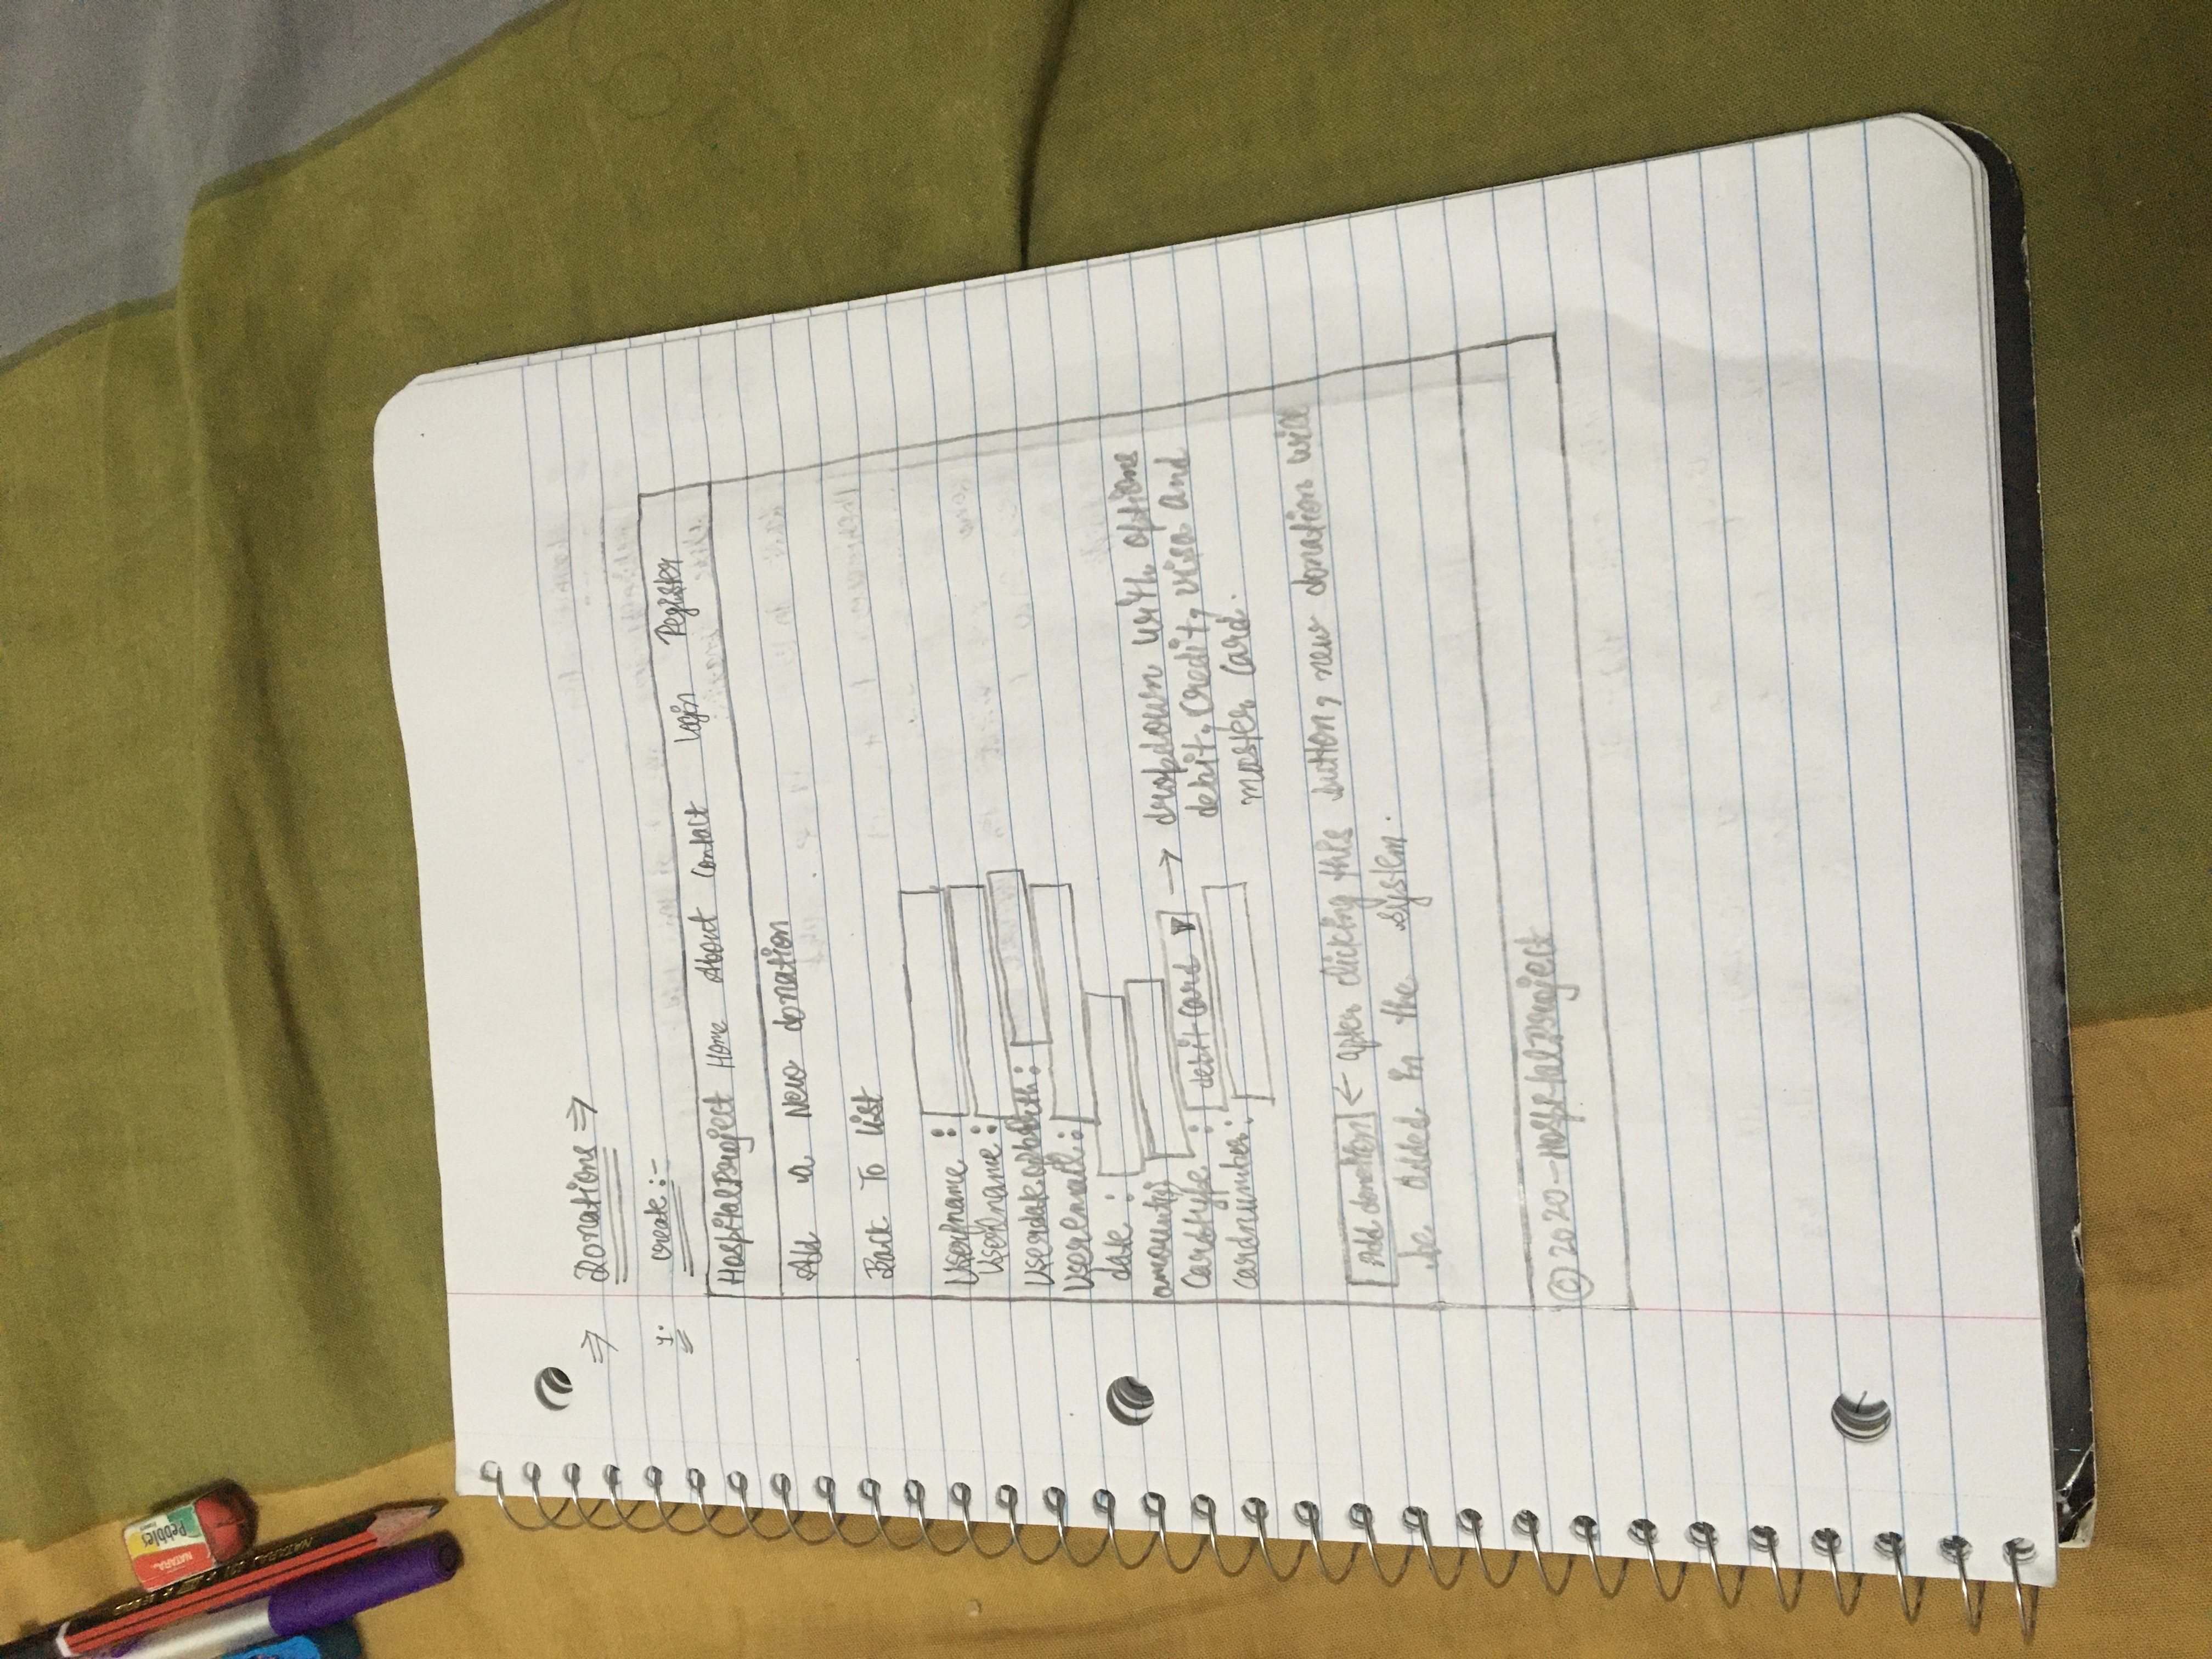 ⇒ Donations ⇒
1. Create :-
HospitalProject Home About Contact Login Register
Add a New donation
Back To List
Userfname :
Userlname :
Userdateofbirth :
Useremail :
date :
amount($)
Cardtype : debit Card ▼ → dropdown with options
debit, Credit, Visa and
master Card.
Cardnumber :
Add donation ← after clicking this button, new donation will
be added in the system.
© 2020 - HospitalProject
NATARAJ
Pebbles